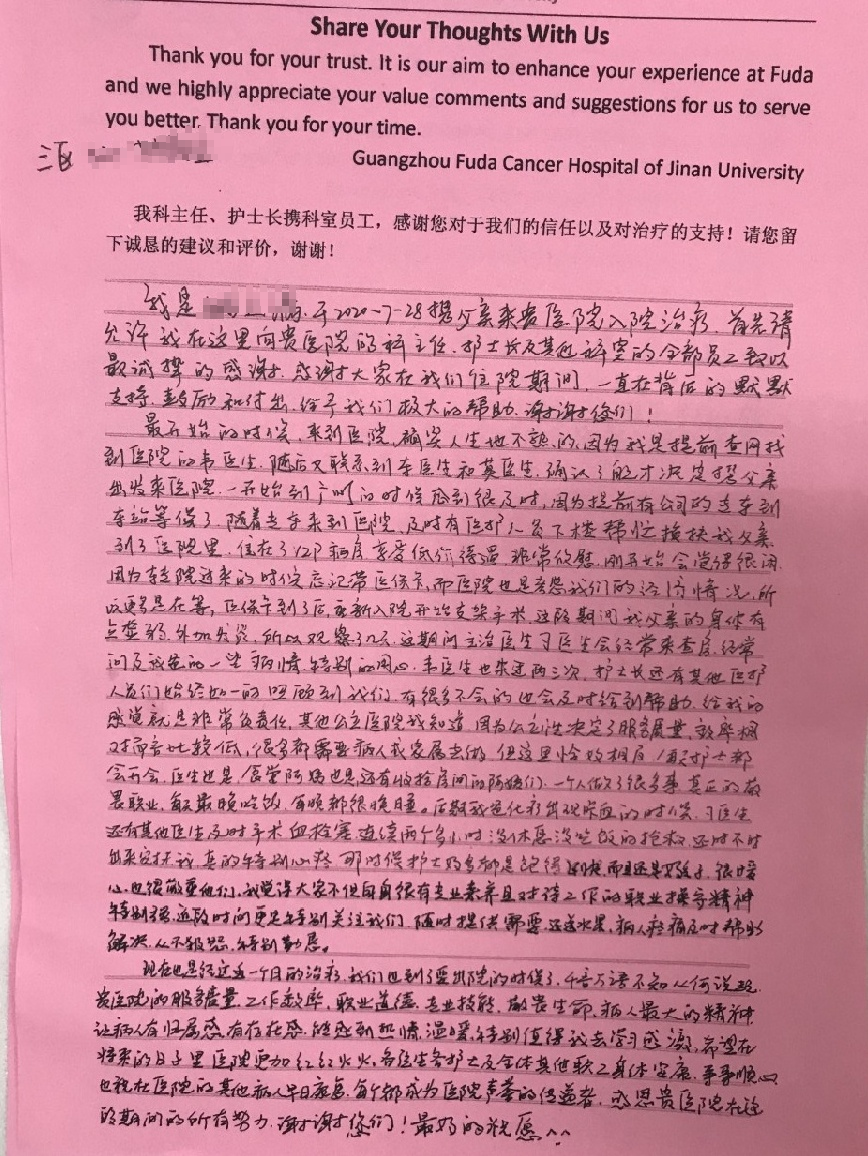 Share Your Thoughts With Us
Thank you for your trust. It is our aim to enhance your experience at Fuda
and we highly appreciate your value comments and suggestions for us to serve
you better. Thank you for your time.
三区
Guangzhou Fuda Cancer Hospital of Jinan University
我科主任、护士长携科室员工，感谢您对于我们的信任以及对治疗的支持！请您留
下诚恳的建议和评价，谢谢！
我是 于2020-7-28携父亲来贵医院入院治疗. 首先请
允许我在这里向贵医院的科主任. 护士长及其他科室的全部员工致以
最诚挚的感谢. 感谢大家在我们住院期间, 一直在背后的默默
支持, 鼓励和付出. 给予我们极大的帮助. 谢谢您们!
最开始的时候, 来到医院, 确实人生地不熟的, 因为我是提前查网找
到医院的韦医生. 随后又联系到车医生和莫医生. 确认了解才决定携父亲
出发来医院. 一开始到广州的时候感到很及时, 因为提前有公司的专车到
车站等候了. 随着专车来到医院, 及时有医护人员下楼帮忙搀扶我父亲.
到了医院里. 住在了12F病房 享受低价待遇 非常欣慰. 刚开始会觉得很闲.
因为转院过来的时候忘记带医保卡, 而医院也是考虑我们的经济情况, 所
以更多是在等, 医保卡到了后, 重新入院开始支架手术. 这段期间我父亲的身体有
点虚弱. 外加发炎. 所以观察了几天. 这期间主治医生习医生会经常来查房. 经常
问及我爸的一些病情. 特别的用心. 韦医生也来过两三次, 护士长还有其他医护
人员们始终如一的照顾到我们. 有很多不会的也会及时给到帮助. 给我的
感觉就是非常负责任, 其他公立医院我知道. 因为公立性决定了服务质量. 效率相
对而言比较低, 很多都需要病人或家属去做. 但这里恰好相反, 护士都
会开会. 医生也是, 食堂阿姨也是, 还有收拾房间的阿姨们. 一个人做了很多事 真正的敬
畏职业, 每天最晚吃饭, 每晚都很晚睡. 后期我爸化疗出现咳血的时候, 习医生
还有其他医生及时手术血栓塞. 连续两个多小时没休息没吃饭的抢救. 还时不时
出来安抚我. 真的特别心疼 那时候护士 很暖
心. 也很敬重他们. 我觉得大家不但自身很有专业素养且对待工作的职业操守精神
特别强. 这段时间更是特别关注我们. 随时提供需要. 还送水果, 病人疼痛及时帮助
解决. 从不抱怨. 特别勤恳。
现在也是经过近一个月的治疗. 我们也到了要出院的时候了. 千言万语不知从何说起.
贵医院的服务质量. 工作效率, 职业道德. 专业技能. 敬畏生命. 病人最大的精神.
让病人有归属感. 有存在感. 能感到热情. 温暖. 特别值得我去学习感激. 希望在
将来的日子里医院更加红红火火, 各医生各护士及全体其他职工身体安康. 事事顺心
也祝在医院的其他病人早日康复. 每个都成为医院声誉的传递者. 感恩贵医院在这
段期间的所有努力. 谢谢您们! 最好的祝愿^^